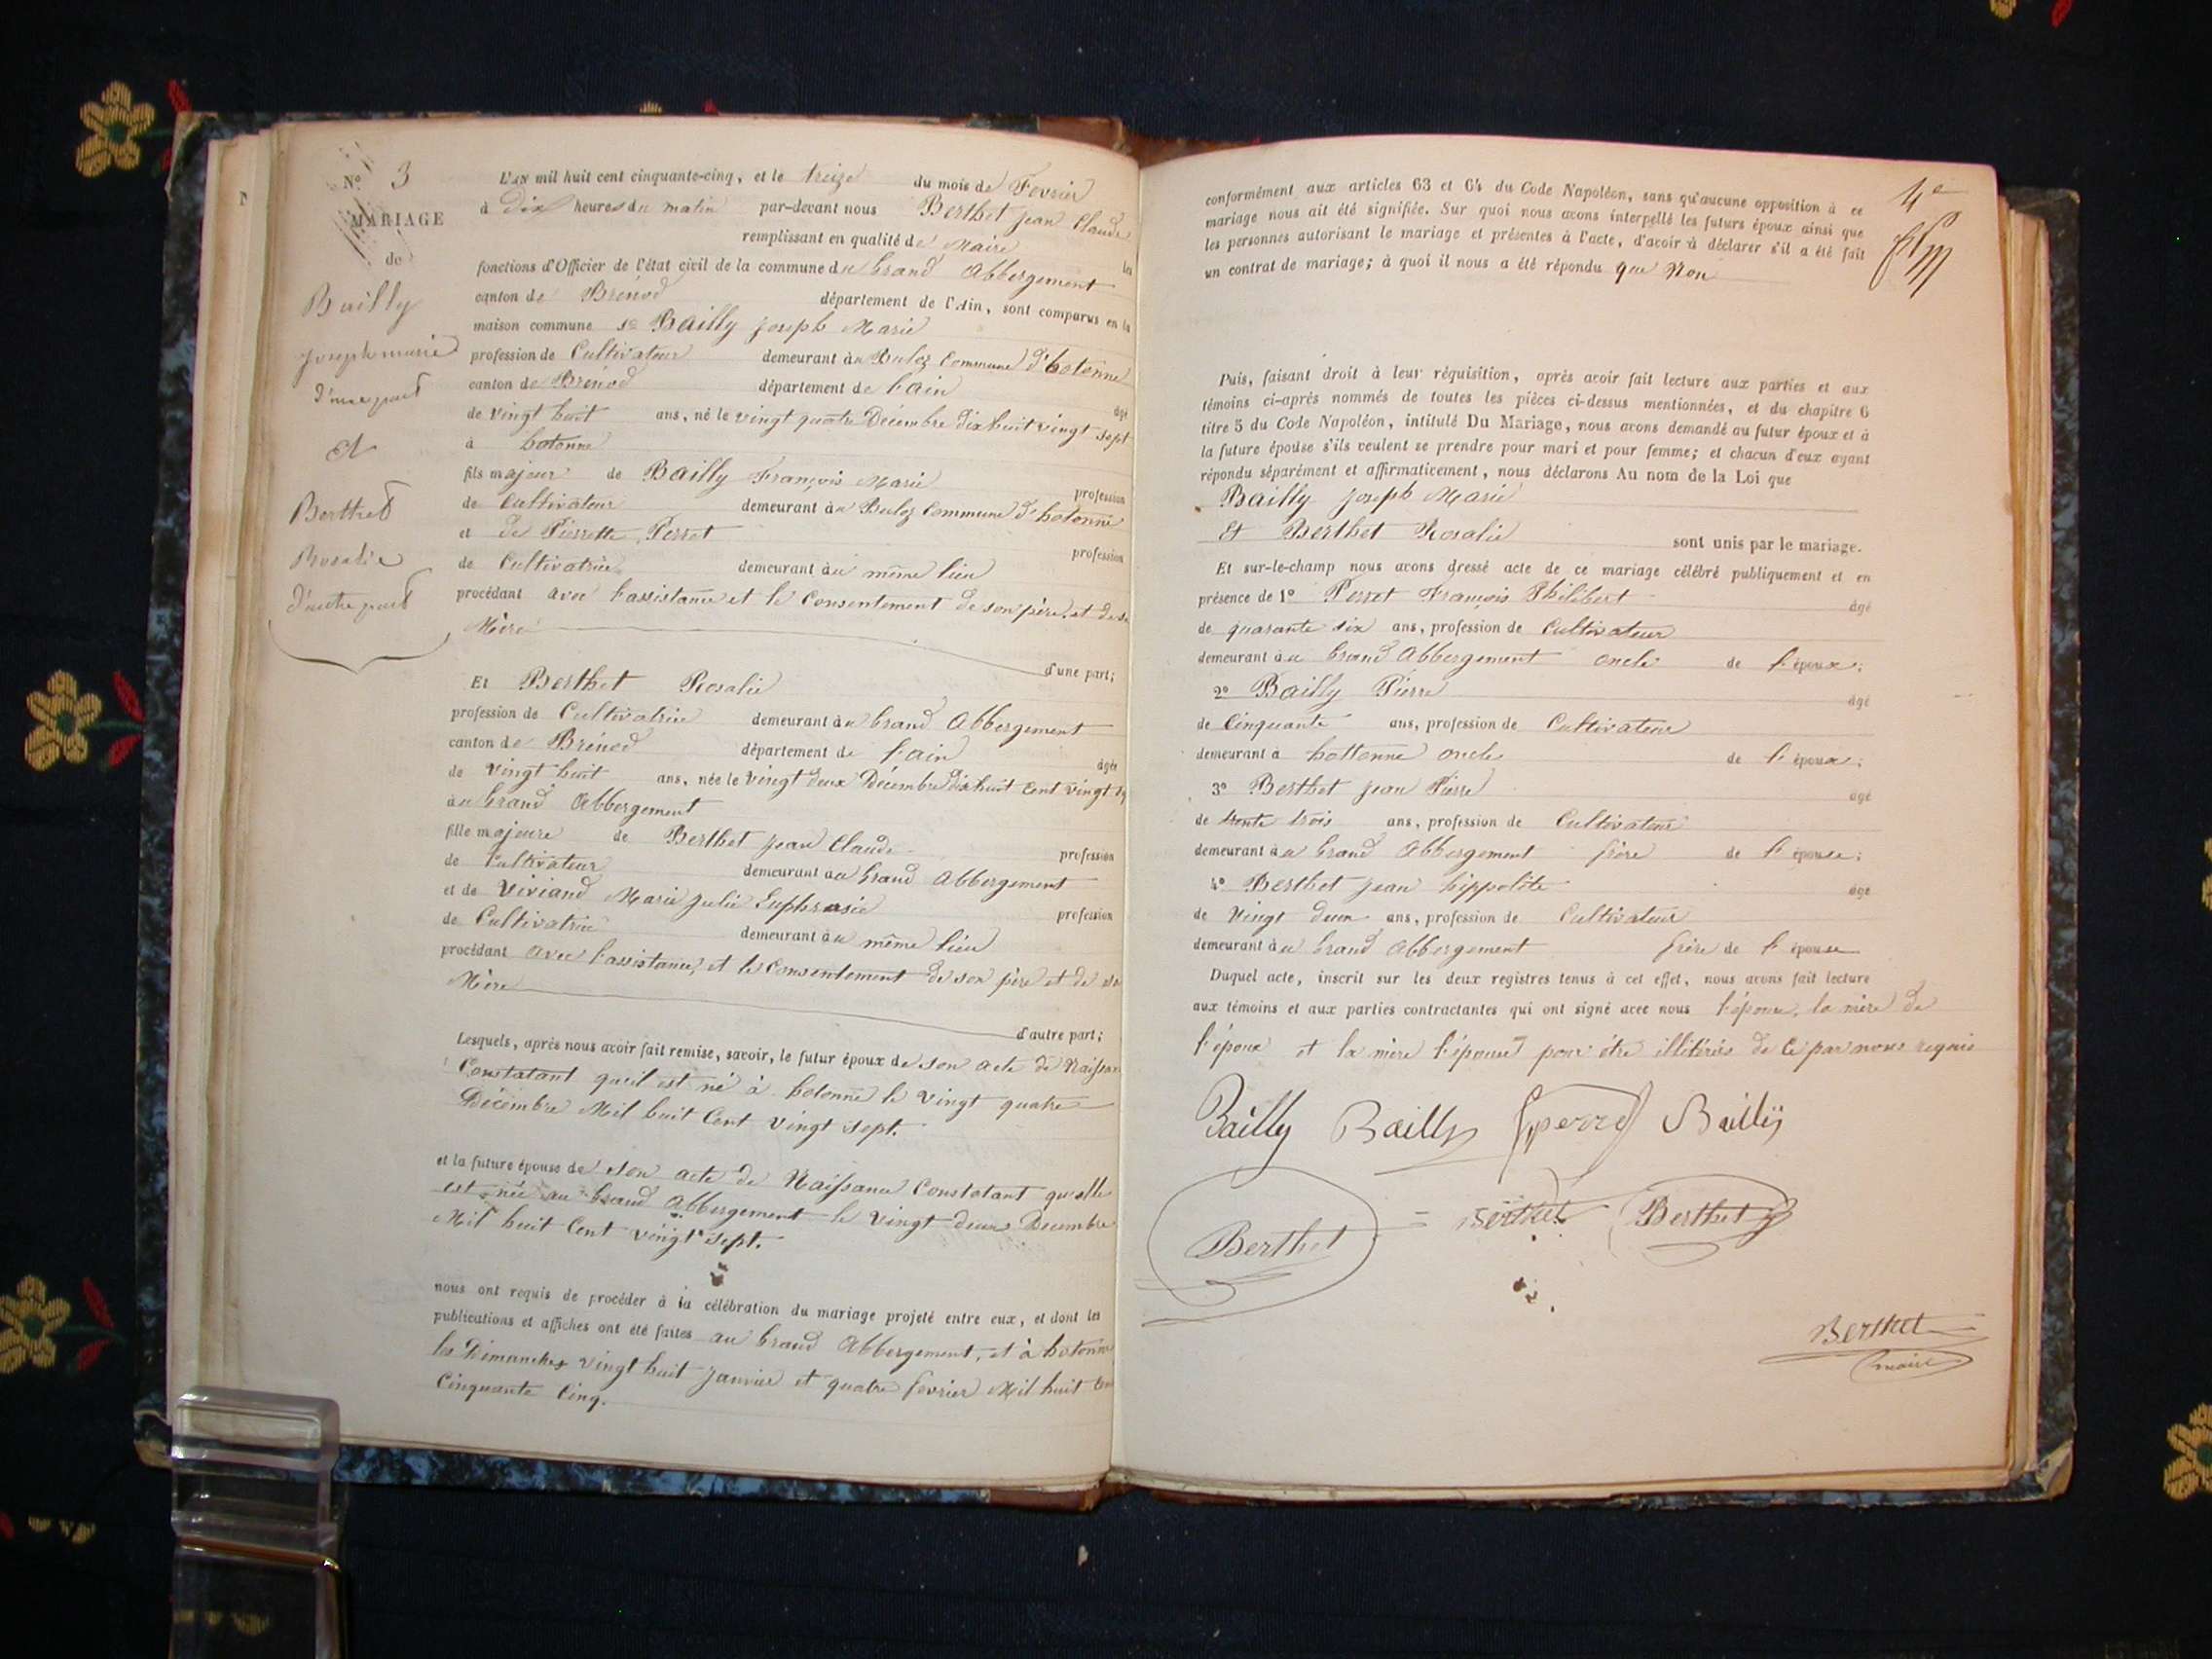 N° 3
MARIAGE
de
Bailly
Joseph marie
d'une part
Et
Berthet
Rosalie
d'autre part
L'AN mil huit cent cinquante-cinq, et le treize du mois de Fevrier
à Dix heures du matin par-devant nous Berthet Jean Claude
remplissant en qualité de Maire les
fonctions d'Officier de l'état civil de la commune du Grand Abbergement
canton de Brénod département de l'Ain, sont comparus en la
maison commune Sr Bailly Joseph Marie
profession de Cultivateur demeurant au Bulez Commune d'hotonne
canton de Brénod département de l'ain âgé
de vingt huit ans, né le vingt quatre Décembre dix huit vingt sept
à hotonne
fils majeur de Bailly François Marie profession
de Cultivateur demeurant au Bulez Commune d'hotonne
et de Pierrette Perret profession
de Cultivatrice demeurant au même lieu
procédant avec l'assistance et le Consentement de son père et de sa
Mère d'une part;
Et Berthet Rosalie
profession de Cultivatrice demeurant au Grand Abbergement
canton de Brénod département de l'ain âgée
de vingt huit ans, née le vingt deux Décembre dix huit Cent vingt
au Grand Abbergement
fille majeure de Berthet Jean Claude profession
de Cultivateur demeurant au Grand Abbergement
et de Viviand Marie Julie Euphrasie profession
de Cultivatrice demeurant au même lieu
procédant avec l'assistance et le Consentement de son père et de sa
Mère d'autre part;
Lesquels, après nous avoir fait remise, savoir, le futur époux de son acte de Naissance
Constatant qu'il est né à hotonne le vingt quatre
Décembre Mil huit Cent vingt sept.
et la future épouse de son acte de Naissance Constatant qu'elle
est née au Grand Abbergement le vingt deux Décembre
Mil huit Cent vingt sept.
nous ont requis de procéder à la célébration du mariage projeté entre eux, et dont les
publications et affiches ont été faites au Grand Abbergement, et à hotonne
les Dimanches vingt huit janvier et quatre fevrier Mil huit Cent
Cinquante Cinq.
4e
conformément aux articles 63 et 64 du Code Napoléon, sans qu'aucune opposition à ce
mariage nous ait été signifiée. Sur quoi nous avons interpellé les futurs époux ainsi que
les personnes autorisant le mariage et présentes à l'acte, d'avoir à déclarer s'il a été fait
un contrat de mariage; à quoi il nous a été répondu que Non
Puis, faisant droit à leur réquisition, après avoir fait lecture aux parties et aux
témoins ci-après nommés de toutes les pièces ci-dessus mentionnées, et du chapitre 6
titre 5 du Code Napoléon, intitulé Du Mariage, nous avons demandé au futur époux et à
la future épouse s'ils veulent se prendre pour mari et pour femme; et chacun d'eux ayant
répondu séparément et affirmativement, nous déclarons Au nom de la Loi que
Bailly Joseph Marie
Et Berthet Rosalie sont unis par le mariage.
Et sur-le-champ nous avons dressé acte de ce mariage célébré publiquement et en
présence de 1° Perret François Philibert âgé
de quarante six ans, profession de Cultivateur
demeurant au Grand Abbergement oncle de l'époux;
2° Bailly Pierre âgé
de Cinquante ans, profession de Cultivateur
demeurant à hottonne oncle de l'époux;
3° Berthet Jean Pierre âgé
de trente trois ans, profession de Cultivateur
demeurant au Grand Abbergement frère de l'épouse;
4° Berthet Jean hippolite âgé
de Vingt deux ans, profession de Cultivateur
demeurant au Grand Abbergement frère de l'épouse
Duquel acte, inscrit sur les deux registres tenus à cet effet, nous avons fait lecture
aux témoins et aux parties contractantes qui ont signé avec nous l'épouse, la mère de
l'époux et la mère l'épouse pour être illitérés de Ce par nous requis
Bailly Bailly perret Bailly
Berthet Berthet Berthet
Berthet
maire